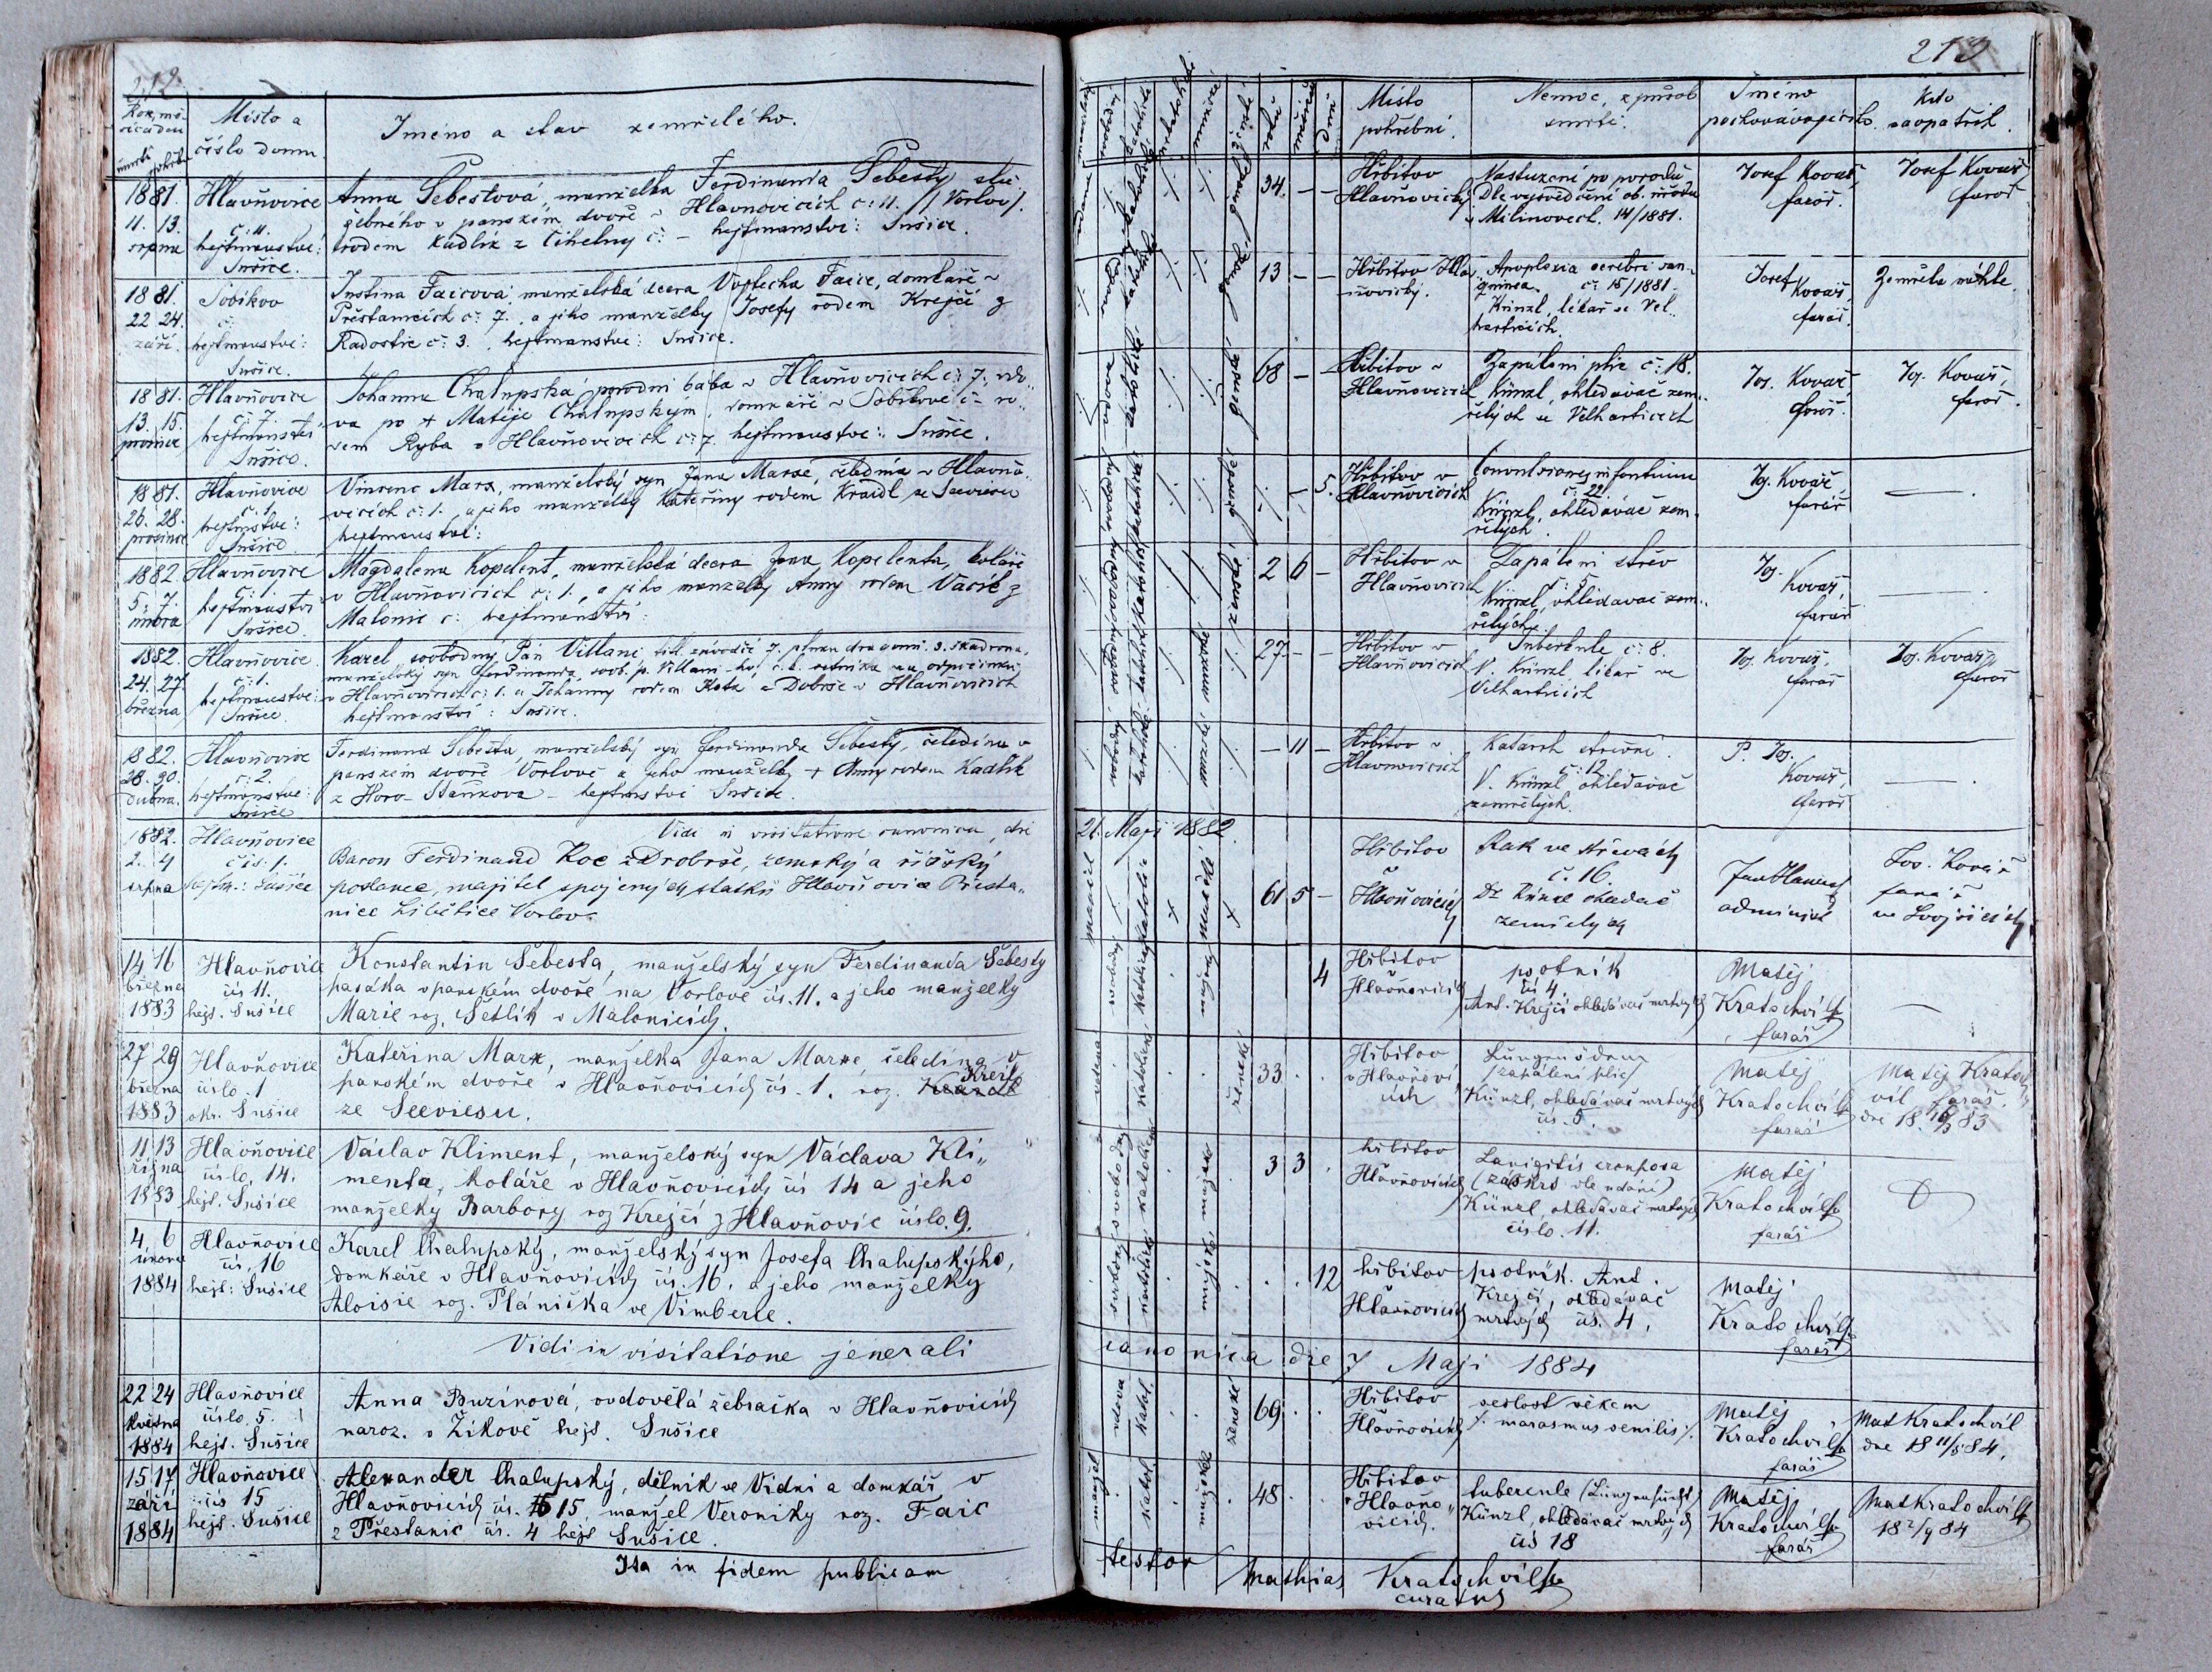 212
Rok, mě-
síc a den
úmrtí pohřbu
Místo a
číslo domu
Jméno a stav zemřelého.
1881.
11. 13.
srpna
Hlavňovice
č: 11.
hejtmanství:
Sušice.
Anna Šebestová, manželka Ferdinanda Šebesty slu-
žebného v panském dvoře v Hlavňovicích č: 11. /: Vorlov :/.
rodem Kadlik z Cihelny č: – hejtmanství: Sušice.
1881.
22 24.
září.
Sobíkov
č:
hejtmanství:
Sušice.
Justina Faicová, manželská dcera Vojtěcha Faice, domkáře v
Přestanicích č: 7., a jeho manželky Josefy rodem Krejčí z
Radostic č: 3., hejtmanství: Sušice.
1881.
13. 15.
prosince
Hlavňovice
č: 7.
hejtmanství
Sušice.
Johanna Chalupská, porodní bába v Hlavňovicích č: 7., vdo-
va po + Matěje Chalupským, domkáři v Sobikově č – ro-
dem Ryba z Hlavňovicích č: 7. hejtmanství: Sušice.
1881.
26. 28.
prosince
Hlavňovice
č: 1.
hejtmství:
Sušice
Vincenc Marx, manželský syn Jana Marxe, čeledína v Hlavňo-
vicích č: 1. a jeho manželky Kateřiny rodem Kraidl ze Seeviesu
hejtmanství:
1882.
5. 7.
února
Hlavňovice
č: 1.
hejtmanství
Sušice
Magdalena Kopelent, manželská dcera Jana Kopelenta, koláře
v Hlavňovicích č: 1., a jeho manželky Anny rodem Vacík z
Malonic č: hejtmanství:
1882.
24. 27.
března
Hlavňovice
č: 1.
hejtmanství:
Sušice.
Karel svobodný Pán Villani, tit. závodčí 7. pluku dragounů. 3. škadrona,
manželský syn Ferdinanda, svob. p. Villani-ho, c. k. rytmistra na odpočinku
v Hlavňovicích č: 1. a Johanny rodem Kotz z Dobrše v Hlavňovicích
hejtmanství: Sušice.
1882.
28. 30.
dubna.
Hlavňovice
č: 2.
hejtmanství:
Sušice
Ferdinand Šebesta, manželský syn Ferdinanda Šebesty, čeledína v
panském dvoře Vorlově a jeho manželky + Anny rodem Kadlik
z Horo-Stankova – hejtmství Sušice.
Vidi in visitatione canonica die
1882.
2. 4
srpna
Hlavňovice
čís. 1.
hejtm.: Sušice
Baron Ferdinand Koc z Dobrše, zemský a říšský
poslanec, majitel spojených statků Hlavňovice Přesta-
nice Libětice Vorlov
14 16
března
1883
Hlavňovice
čís 11.
hejt. Sušice
Konstantin Šebesta, manželský syn Ferdinanda Šebesty
pasáka v panském dvoře na Vorlově čís. 11. a jeho manželky
Marie roz. Šetlík v Malonicích.
27 29
března
1883
Hlavňovice
číslo. 1
okr. Sušice
Kateřina Marx, manželka Jana Marxe, čeledína v
panském dvoře v Hlavňovicích čís. 1. roz. Kreitl
ze Seeviesu.
11 13
října
1883
Hlavňovice
číslo. 14.
hejt. Sušice
Václav Kliment, manželský syn Václava Kli-
menta, koláře v Hlavňovicích čís 14 a jeho
manželky Barbory roz Krejčí z Hlavňovic číslo. 9.
4. 6
února
1884
Hlavňovice
čís. 16
hejt: Sušice
Karel Chalupský, manželský syn Josefa Chalupskýho,
domkáře v Hlavňovicích čís. 16. a jeho manželky
Aloisie roz. Plániška ve Vimberce.
Vidi in visitatione jenerali
22 24
května
1884
Hlavňovice
číslo. 5.
hejt. Sušice
Anna Buzinová, ovdovělá žebračka v Hlavňovicích
naroz. v Žikově hejt. Sušice
15 17
září
1884
Hlavňovice
čís 15
hejt. Sušice
Alexander Chalupský, dělník ve Vídni a domkář v
Hlavňovicích čís. 15, manžel Veroniky roz. Faic
z Přestanic čís. 4 hejt Sušice.
Ita in fidem publicam
213
Místo
pohřební.
Nemoc, způsob
smrti.
Jméno
pochovávajícího.
Kdo
zaopatřil.
34. – –
Hřbitov
Hlavňovický
Nastuzení po porodu
Dle vysvědčení ob. úřadu
v Milínovech. 14/1881.
Josef Kovář,
farář.
Josef Kovář
farář
13 – –
Hřbitov Hla-
vňovický.
Apoplexia cerebri san-
guinea. č: 15/1881.
Künzl, lékař ve Vel-
harticích.
Josef
Kovář,
farář.
Zemřela náhle.
68 – –
Hřbitov v
Hlavňovicích
Zapálení plic č: 18.
Künzl, ohledavač zem-
řelých ve Velharticích
Jos. Kovář
farář.
Jos. Kovář,
farář.
– 5.
Hřbitov v
Hlavňovicích
Convulsiones infantium
č: 22.
Künzl, ohledávač zem-
řelých.
Jos. Kovář,
farář
2 6 –
Hřbitov v
Hlavňovicích
Zapálení střev
č: 5.
Künzl, ohledavač zem-
řelých.
Jos.
Kovář,
farář
27 – –
Hřbitov v
Hlavňovicích
Tuberkule č: 8.
V. Künzl lékař ve
Velharticích
Jos. Kovář,
farář
Jos. Kovář,
farář
– 11 –
Hřbitov v
Hlavňovicích
Katarrh střevní
č: 12.
V. Künzl ohledavač
zemřelých.
P. Jos.
Kovář,
farář
21. Maji 1882.
61 5 –
Hřbitov
Hlavňovicích
Rak ve střevách
č. 16
Dr Künzl ohledač
zemřelých
administ
farář
4
Hřbitov
Hlavňovicích
psotník
čís 4.
Ant. Krejčí ohledávač mrtvých
Matěj
Kratochvíl
farář
ženské
33 . .
Hřbitov
v Hlavňovi
cích
Lungenödem
/zapálení plic/
Künzl, ohledávač mrtvých
čís. 5.
Matěj
Kratochvíl
farář
Matěj Kratoch-
víl farář
3 3 .
hřbitov
Hlavňovicích
(záškrt dle udání)
Künzl, ohledávač mrtvých
číslo. 11.
Matěj
Kratochvíl
farář
12
hřbitov
Hlavňovicích
psotník. Ant.
Krejčí, ohledávač
mrtvých čís. 4,
Matěj
Kratochvíl
farář
canonica die 7 Maji 1884
vdova katol. ženské
69 . .
Hřbitov
Hlavňovických
sešlost věkem
/: marasmus senilis :/.
Matěj
Kratochvíl
farář
Mat Kratochvíl
dne 18 11/5 84.
48 . .
Hřbitov
v Hlavňo-
vicích.
tubercule (Lungensucht)
Künzl, ohledávač mrtvých
čís 18
Matěj
Kratochvíl
farář
Mat Kratochvíl
18 2/9 84
testor Mathias Kratochvíl
curatus